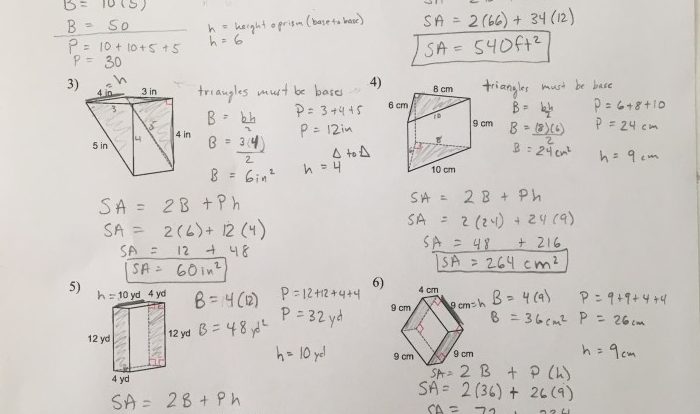 B = 10(5)
B = 50
P = 10+10+5+5
P = 30
h = height of prism (base to base)
h = 6
SA = 2(66) + 34(12)
SA = 540ft²
3)
= h
4 in
3 in
3
5
4
5 in
4 in
triangles must be bases
B = bh/2
B = 3(4)/2
B = 6in²
P = 3+4+5
P = 12in
Δ to Δ
h = 4
SA = 2B + Ph
SA = 2(6) + 12(4)
SA = 12 + 48
SA = 60in²
4)
8 cm
6 cm
10
9 cm
8
6
10 cm
triangles must be base
B = bh/2
B = (8)(6)/2
B = 24cm²
P = 6+8+10
P = 24 cm
h = 9 cm
SA = 2B + Ph
SA = 2(24) + 24(9)
SA = 48 + 216
SA = 264 cm²
5)
h = 10 yd
4 yd
12 yd
12 yd
4 yd
B = 4(12)
B = 48yd²
P = 12+12+4+4
P = 32yd
h = 10yd
SA = 2B + Ph
6)
4 cm
9 cm
9 cm = h
9 cm
9 cm
B = 4(9)
B = 36cm²
P = 9+9+4+4
P = 26cm
h = 9cm
SA = 2B + P(h)
SA = 2(36) + 26(9)
SA = 72 + 234